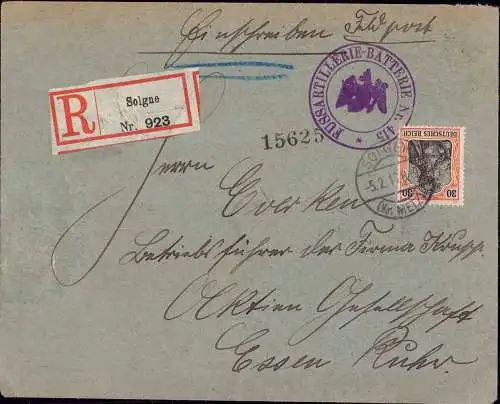 Einschreiben Feldpost
R
Solgne
Nr. 923
FUSSARTILLERIE-BATTERIE Nr. 415
15625
DEUTSCHES REICH
30 30
5.2.1
(Kr. MET
Herrn
Everken
Betriebsführer der Firma Krupp
Aktien Gesellschaft
Essen Ruhr